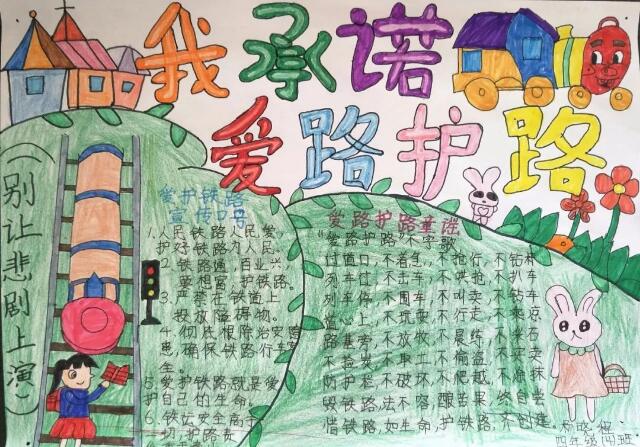 我承诺
爱路护路
(别让悲剧上演)
爱护铁路
宣传口号
1.人民铁路人民爱,
护好铁路为人民。
2.铁路通,百业兴
要想富,护铁路。
3.严禁在铁道上
投放障碍物。
4.彻底根除治安隐
患,确保铁路行车安
全。
5.爱护铁路就是爱
护自己的生命,
6.铁路安全高于
一切护路
爱路护路童谣
"爱路护路"不
过道口,不着急,不抢行,不钻
列车过,不击车,不
列车停,不围车,不叫卖,不
道心上,不玩耍,不行走,不
路基旁,不放牧,不晨练,不
不捡炭,不收工,不偷盗,不
防护栏,不破坏,不攀爬,不
毁铁路,法不容,酿苦果,终自
惜铁路,如生命,护铁路,齐创建。
四年级(4)班